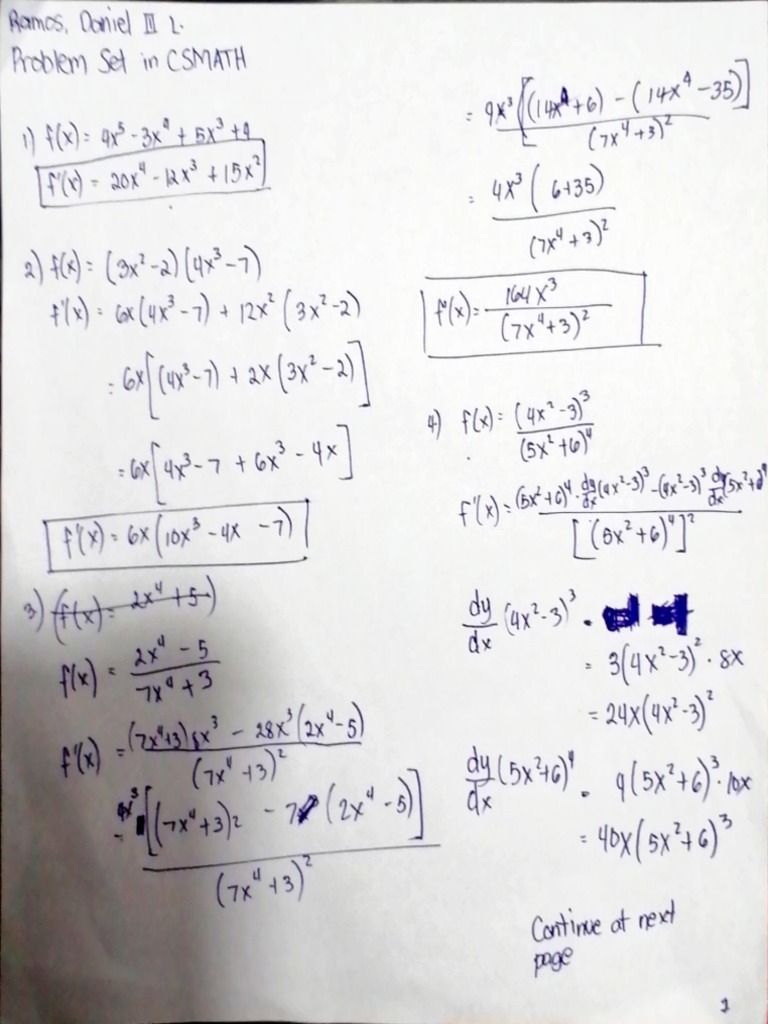 Ramos, Daniel III L.
Problem Set in CSMATH
1) f(x) = 4x⁵ - 3x⁴ + 5x³ + 4
f'(x) = 20x⁴ - 12x³ + 15x²
2) f(x) = (3x² - 2)(4x³ - 7)
f'(x) = 6x(4x³ - 7) + 12x²(3x² - 2)
= 6x[(4x³ - 7) + 2x(3x² - 2)]
= 6x[4x³ - 7 + 6x³ - 4x]
f'(x) = 6x(10x³ - 4x - 7)
3) (f(x) = 2x⁴ + 5)
f(x) = \frac{2x⁴ - 5}{7x⁴ + 3}
f'(x) = \frac{(7x⁴+3)8x³ - 28x³(2x⁴ - 5)}{(7x⁴ + 3)²}
= \frac{4x³[(7x⁴+3)2 - 7(2x⁴ - 5)]}{(7x⁴ + 3)²}
= \frac{4x³[(14x⁴+6) - (14x⁴ - 35)]}{(7x⁴+3)²}
= \frac{4x³(6+35)}{(7x⁴+3)²}
f'(x) = \frac{164x³}{(7x⁴+3)²}
4) f(x) = \frac{(4x² - 3)³}{(5x² + 6)⁴}
f'(x) = \frac{(5x²+6)⁴ · \frac{dy}{dx}(4x²-3)³ - (4x²-3)³ \frac{dy}{dx}(5x²+6)⁴}{[(5x²+6)⁴]²}
\frac{dy}{dx}(4x²-3)³ =
= 3(4x²-3)² · 8x
= 24x(4x²-3)²
\frac{dy}{dx}(5x²+6)⁴ = 4(5x²+6)³ · 10x
= 40x(5x²+6)³
Continue at next
page
1